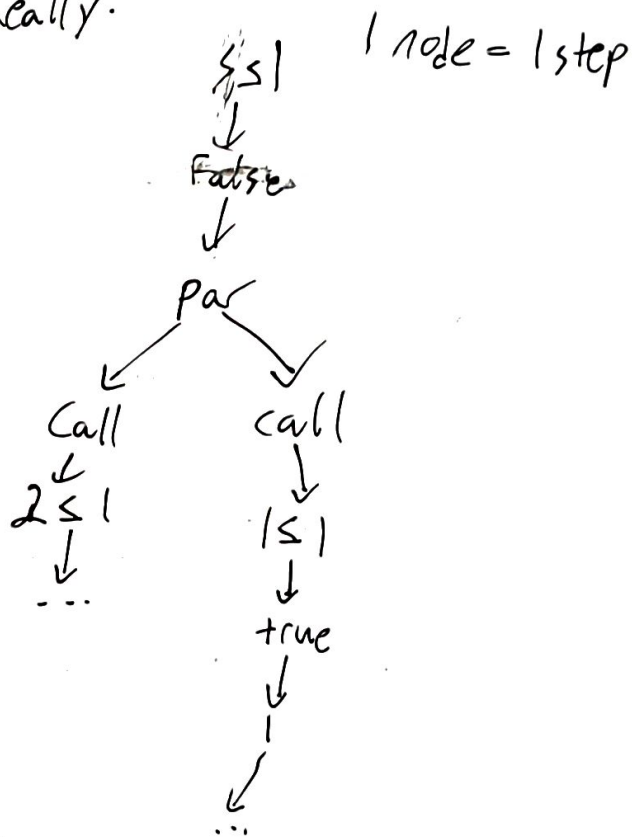 eally.
1 node = 1 step
≤ 1
False
par
Call call
2 ≤ 1 1 ≤ 1
... true
1
...